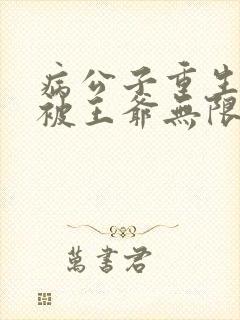 病公子重生
被王爺無限
萬書君